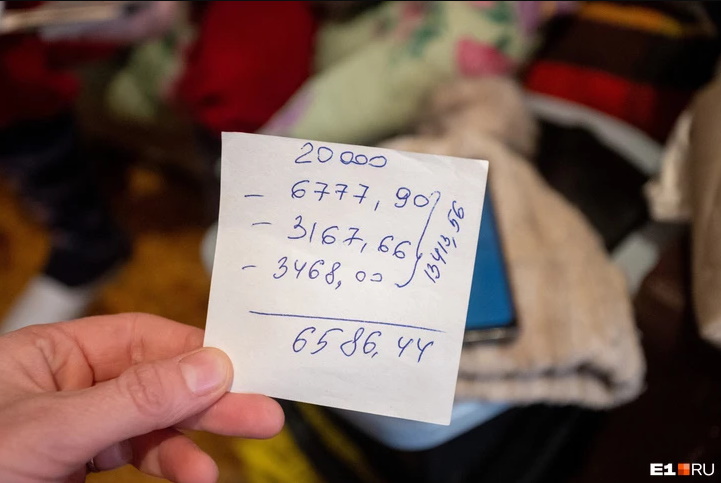 20 000
- 6777,90
- 3167,66
- 3468,00
13413,56
6586,44
E1 RU